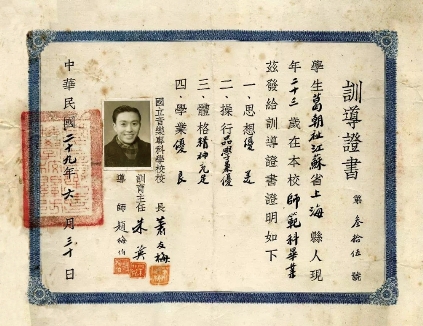 訓導證書
第叁拾伍號
學生葛朝祉江蘇省上海縣人現
年二十三歲在本校師範科畢業
茲發給訓導證書證明如下
一、思想優美
二、操行品學兼優
三、體格精神充足
四、學業優良
國立音樂專科學校校長蕭友梅
訓育主任朱英
導師趙梅伯
中華民國二十九年六月三十日